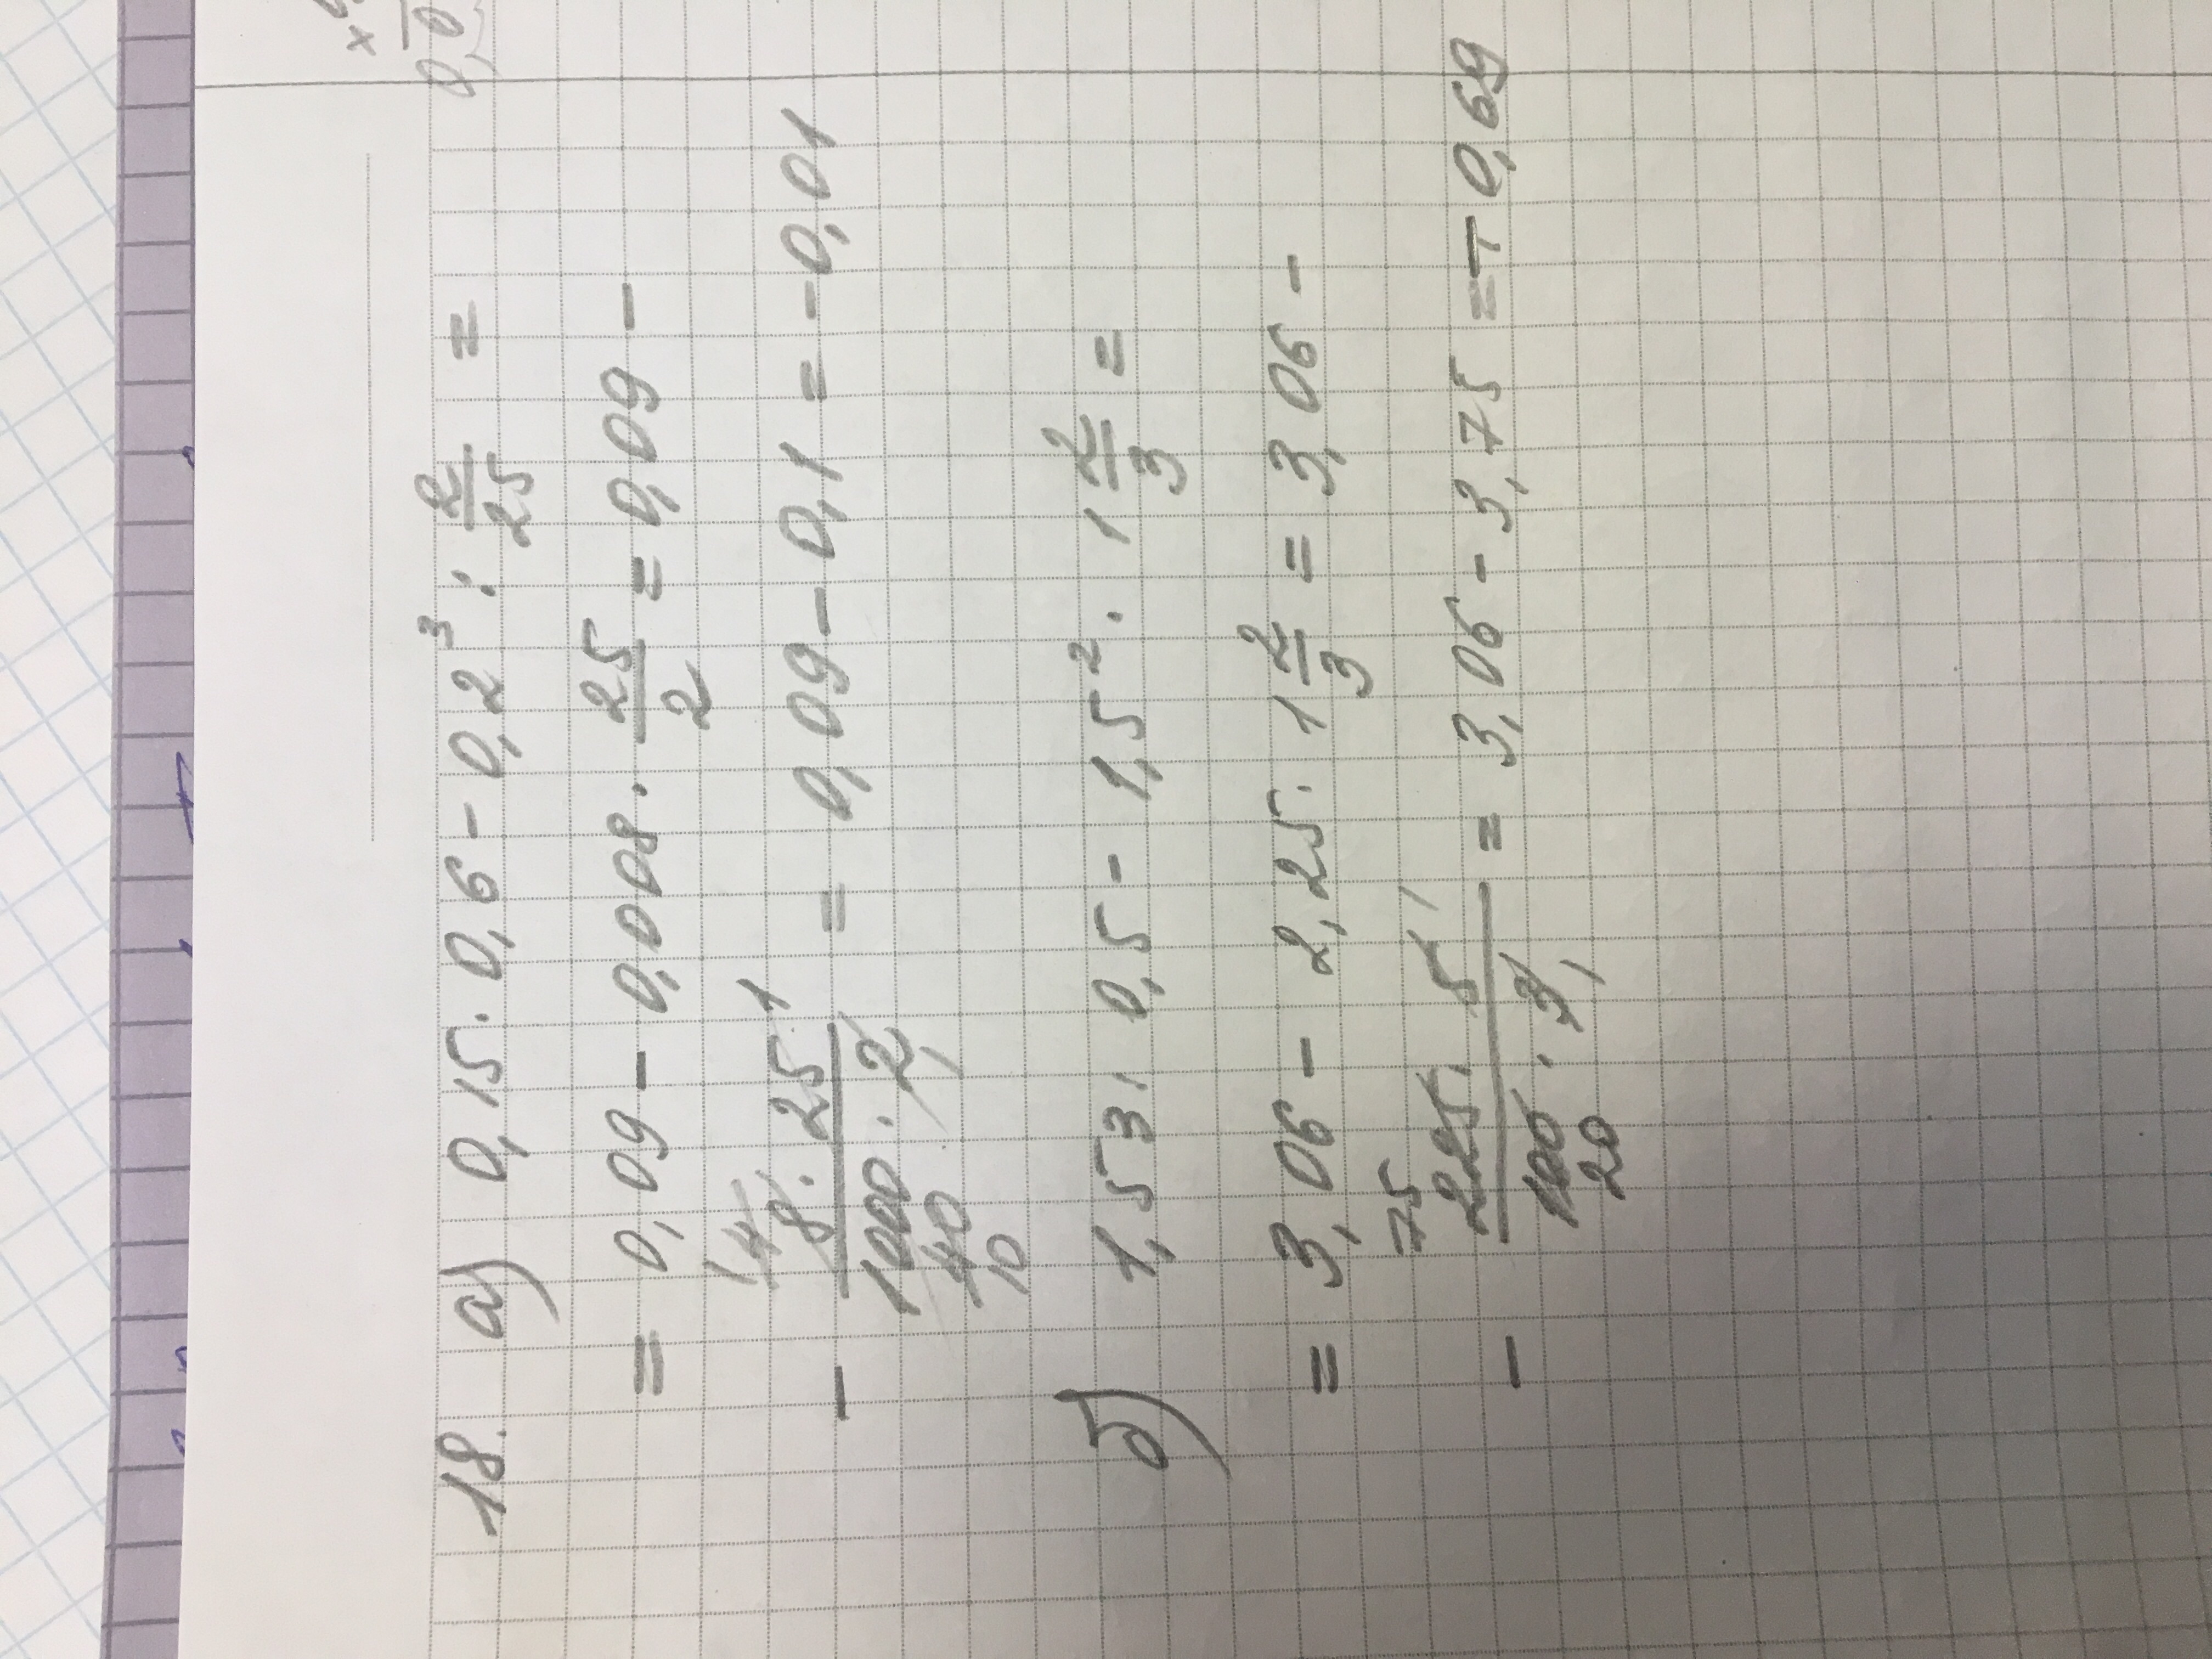 18. а) 0,15 · 0,6 - 0,2³ : 2/25 =
= 0,09 - 0,008 · 25/2 = 0,09 -
- 8 · 25 / 1000 · 2 = 0,09 - 0,1 = -0,01
б) 1,53 : 0,5 - 1,5² · 1 2/3 =
= 3,06 - 2,25 · 1 2/3 = 3,06 -
- 225 · 5 / 100 · 3 = 3,06 - 3,75 = - 0,69